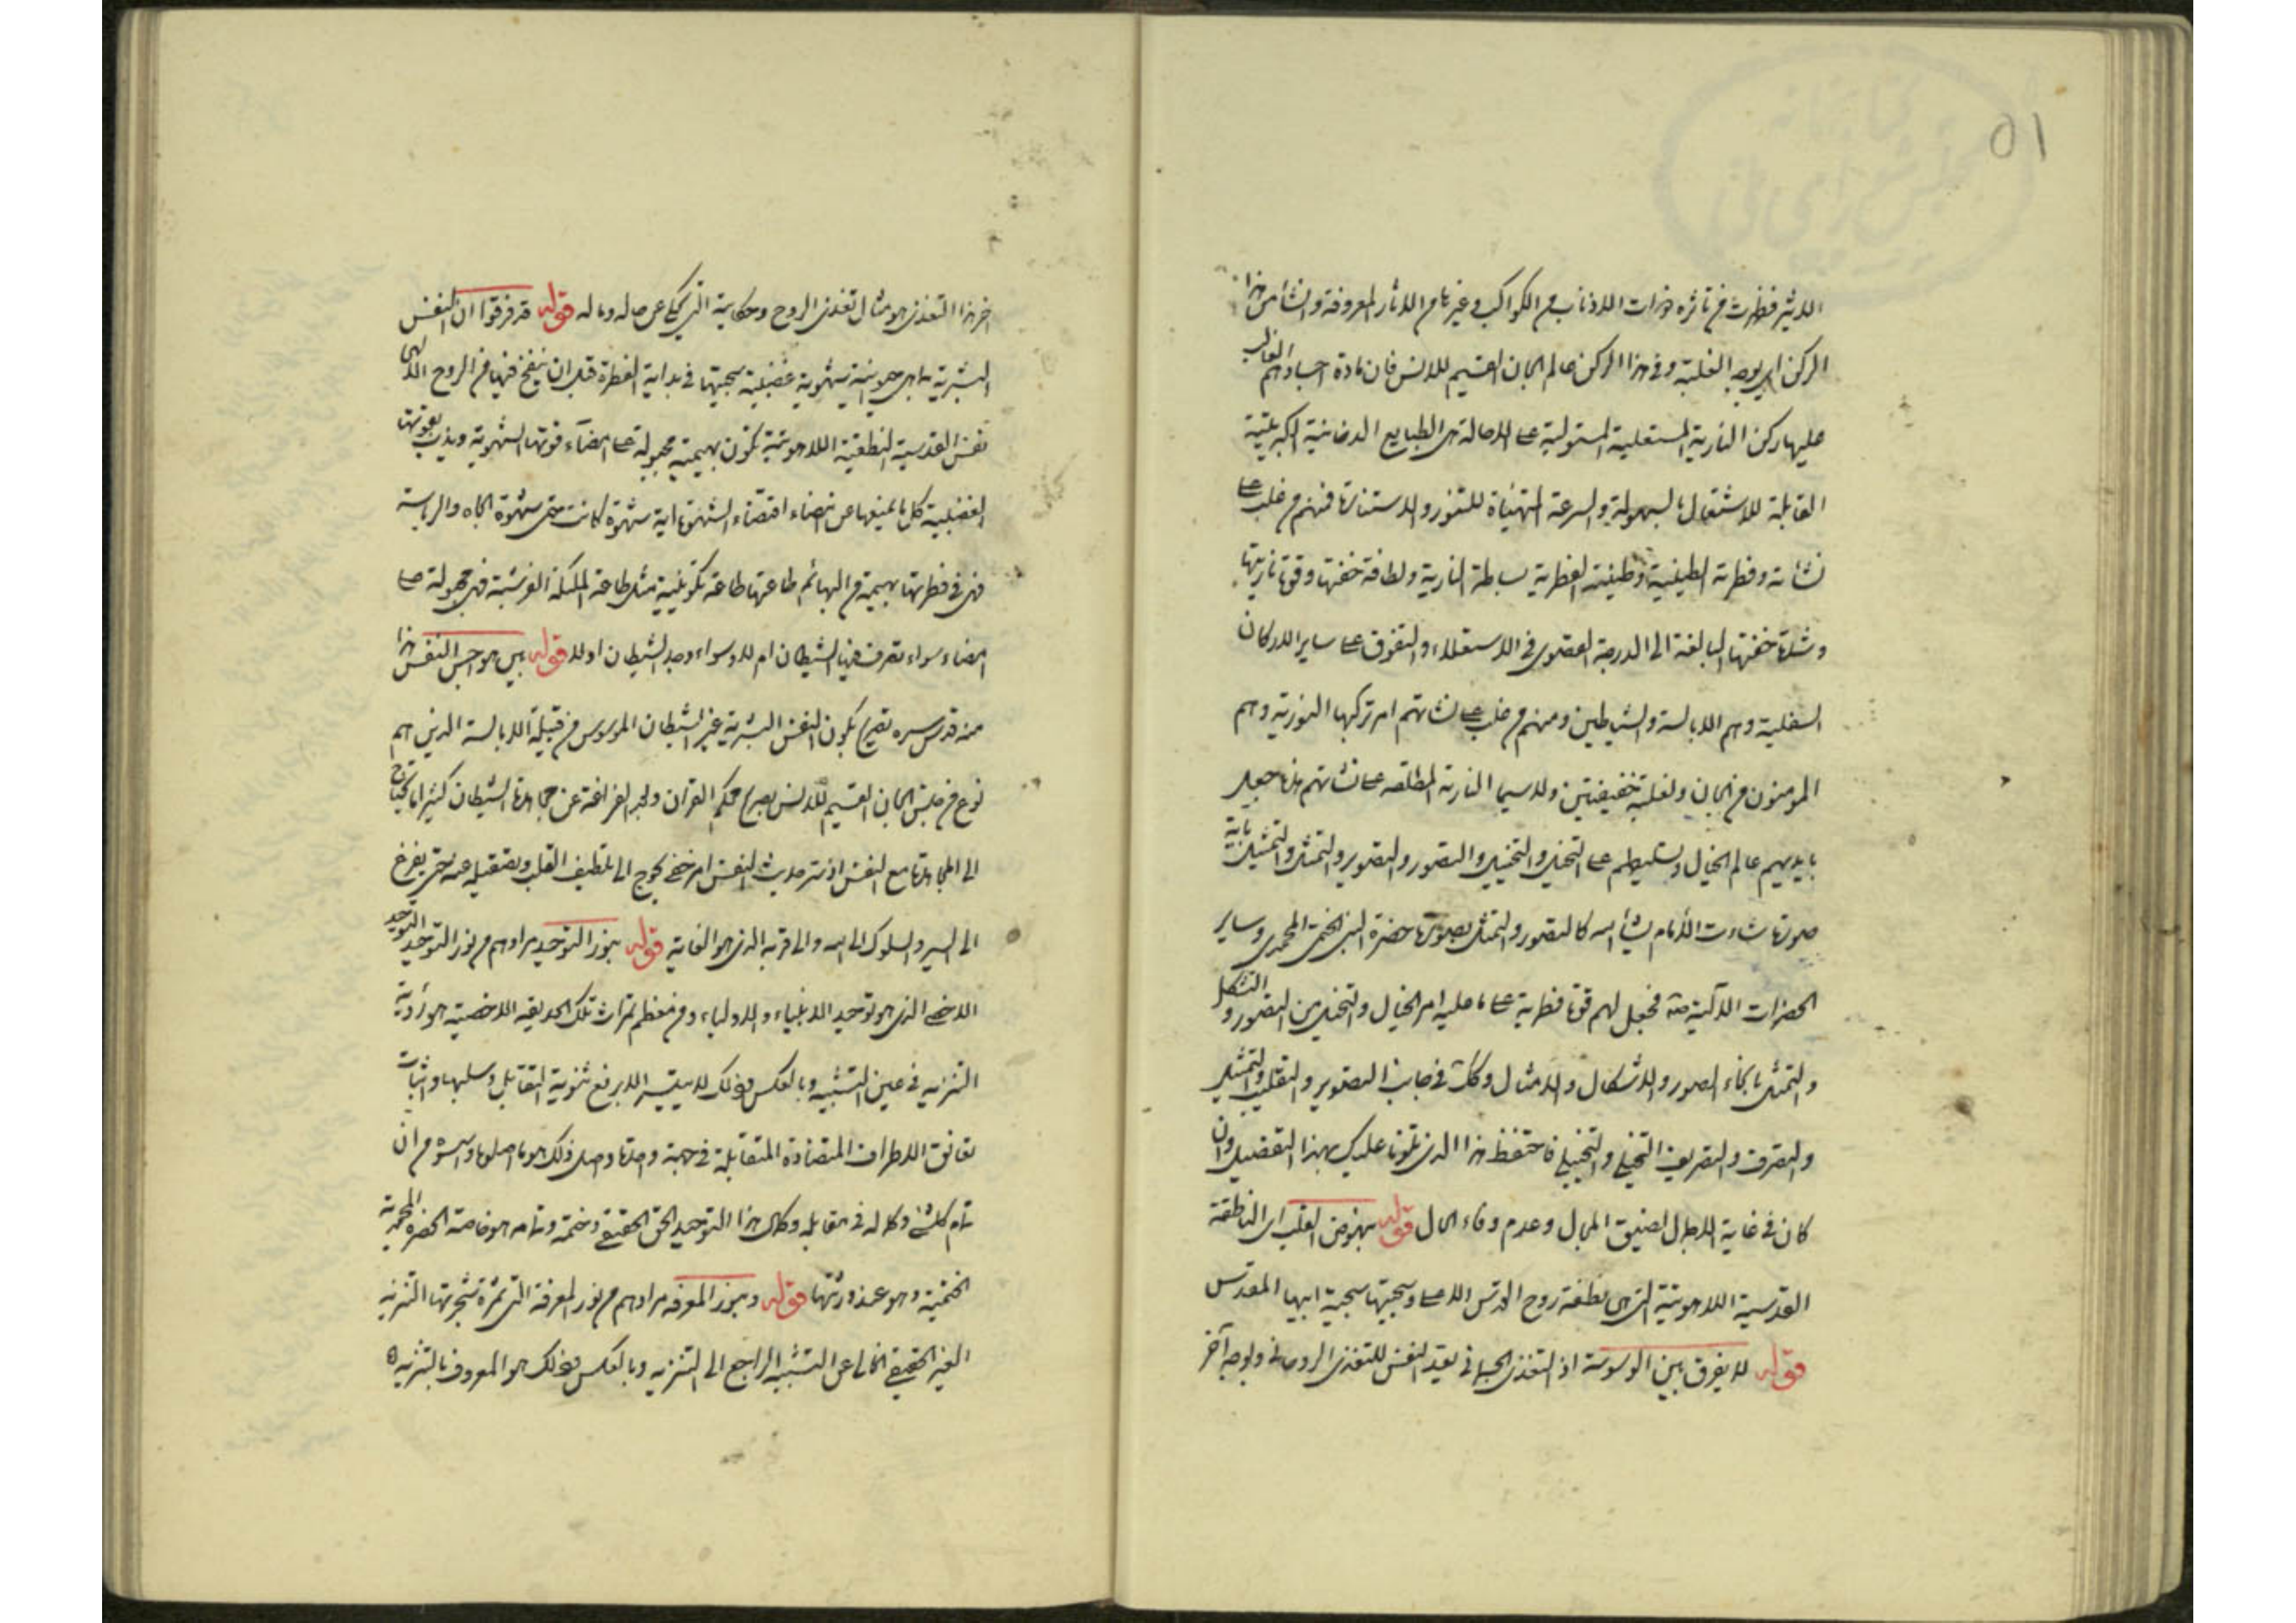 ۵۱
الاثير فظهرت من تأثره ذوات الاذناب من الكواكب وغيرها من الاثار المعروفة والنشأ من هذا
الركن اي بوجه الغلبة وفي هذا الركن عالم الجان القسيم للانس فان مادة اجسادهم الغالب
عليها ركن النارية المستعلية المستولية على الاحالة هى الطبايع الدخانية الكبريتية
القابلة للاشتعال بالسهولة والسرعة المتهيأة للتنور والاستنارة فمنهم من غلب على
نشأته وفطرته الطينية وطينته الفطرية بساطة النارية ولطافة خفتها وقوة ناريتها
وشدة خفتها البالغة الى الدرجة القصوى فى الاستعلاء والتفوق على ساير الاركان
السفلية وهم الابالسة والشياطين ومنهم من غلب على نشأتهم امر تركبها النورية وهم
المومنون من الجان ولغلبة خفيفتين ولاسيما النارية المطلقه على نشأتهم هذه جعل
بايديهم عالم الخيال وتسليطهم على التخيل والتخييل والتصور والتصوير والتمثل والتمثيل باية
صورة شاءت اللهم الا ما شاء الله كالتصور والتمثل بصورة حضرة النبى الختمى المحمدى وساير
الحضرات الآلية منه فجعل لهم قوة فطرية على ما عليه امر الخيال والتخيل من التصور و التشكل
والتمثل بانحاء الصور والاشكال والامثال وكك فى جانب التصوير والتقليب والتمثيل
والتصرف والتصريف التخيلى والتخييلى فاحتفظ هذا الذى تلوناه عليك بهذا التفصيل وان
كان فى غاية الاجمال لضيق المجال وعدم وفاء الحال قوله بنهوض القلب اى الناطقة
القدسية اللاهوتية التى هى نطفة روح القدس الاعلى وسجيتها سجية ابيها المقدس
قوله لا يفرق بين الوسوسة اذ التغذى الجسمانى يقيد النفس للتغذى الروحانى وبوجه آخر
اخر هذا التغذى هو مثال تغذى الروح وحكايته التى يحكى عن حاله وماله قوله قد فرقوا ان النفس
البشرية بما هى حيوانية شهوية غضبية سجيتها فى بداية الفطرة قبل ان ينفخ فيها من الروح الالهى
نفس القدسية النطقية اللاهوتية تكون بهيمية مجبولة على امضاء قوتها الشهوية ويذب بقوتها
الغضبية كل ما يمنعها عن امضاء اقتضاء الشهوة اية شهوة كانت حتى شهوة الجاه والرياسة
فهى فى فطرتها بهيمة من البهائم طاعتها طاعة تكوينية مثل طاعة الملئكة العرشية فهى مجبولة على
امضاء سواء تصرف فيها الشيطان ام لا وسواء وجد الشيطان اولا قوله بين هواجس النفس هذا
منه قدس سره تصريح بكون النفس البشرية غير الشيطان الموسوس من قبيلة الابالسة الذين هم
نوع من جنس الجان القسيم للانس بصريح محكم القران ولعل الفراغة عن مجاهدة الشيطان كثيرا ما تحتاج
الى المجاهدة مع النفس اذ ستر حديث النفس امر خفى يحوج الى تلطيف القلب وتصقيله عنه حتى يفرغ
الى السير والسلوك الى الله والى قربه الذى هو الغاية قوله بنور التوحيد مرادهم من نور التوحيد التوحيد
الاخصى الذى هو توحيد الانبياء والاولياء ومن معظم ثمرات تلك الحديقه الاخصية هو رؤية
التنزيه فى عين التشبيه وبالعكس وذلك لا يتيسر الا برفع ثنوية التقابل وسلبها واثبات
تعانق الاطراف المتضادة المتقابلة فى جهة واحدة واصل ذلك هو ما اصلوه واسسوه من ان
تمام كل شئ وكماله فى مقابله وكمال هذا التوحيد الحق الحقيقى وختمه وتمامه هو خاصة الحضرة المحمدية
الختمية وهو عند ورثتها قوله وبنور المعرفه مرادهم من نور المعرفة التى ثمرة شجرتها التنزيه
الغير الحقيقى الخالى عن التشبيه الراجع الى التنزيه وبالعكس وذلك هو المعروف بالتنزيه